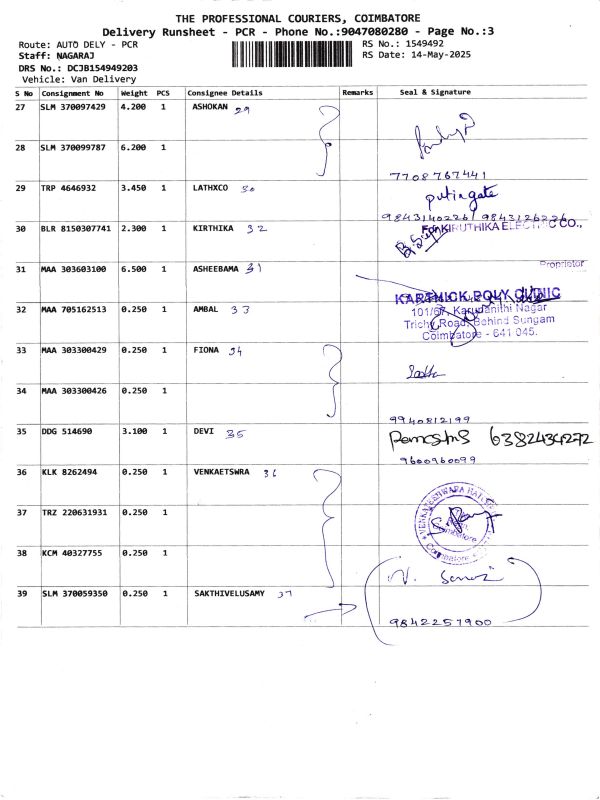 THE PROFESSIONAL COURIERS, COIMBATORE
Delivery Runsheet - PCR - Phone No.:9047080280 - Page No.:3
Route: AUTO DELY - PCR
RS No.: 1549492
Staff: NAGARAJ
RS Date: 14-May-2025
DRS No.: DCJB154949203
Vehicle: Van Delivery
S No Consignment No Weight PCS Consignee Details Remarks Seal & Signature
27 SLM 370097429 4.200 1 ASHOKAN 29
28 SLM 370099787 6.200 1
7708767441
29 TRP 4646932 3.450 1 LATHXCO 30
9843140226/ 9843126226
30 BLR 8150307741 2.300 1 KIRTHIKA 32
For KIRUTHIKA ELECTRIC CO.,
Proprietor
31 MAA 303603100 6.500 1 ASHEEBAMA 31
KARTHICK POLY CLINIC
32 MAA 705162513 0.250 1 AMBAL 33
101/67, Karunanithi Nagar
Trichy Road, Behind Sungam
Coimbatore - 641 045.
33 MAA 303300429 0.250 1 FIONA 34
34 MAA 303300426 0.250 1
9940812199
35 DDG 514690 3.100 1 DEVI 35
6382434272
9600960099
36 KLK 8262494 0.250 1 VENKAETSWRA 36
37 TRZ 220631931 0.250 1
Coimbatore
38 KCM 40327755 0.250 1
39 SLM 370059350 0.250 1 SAKTHIVELUSAMY 37
9842257900